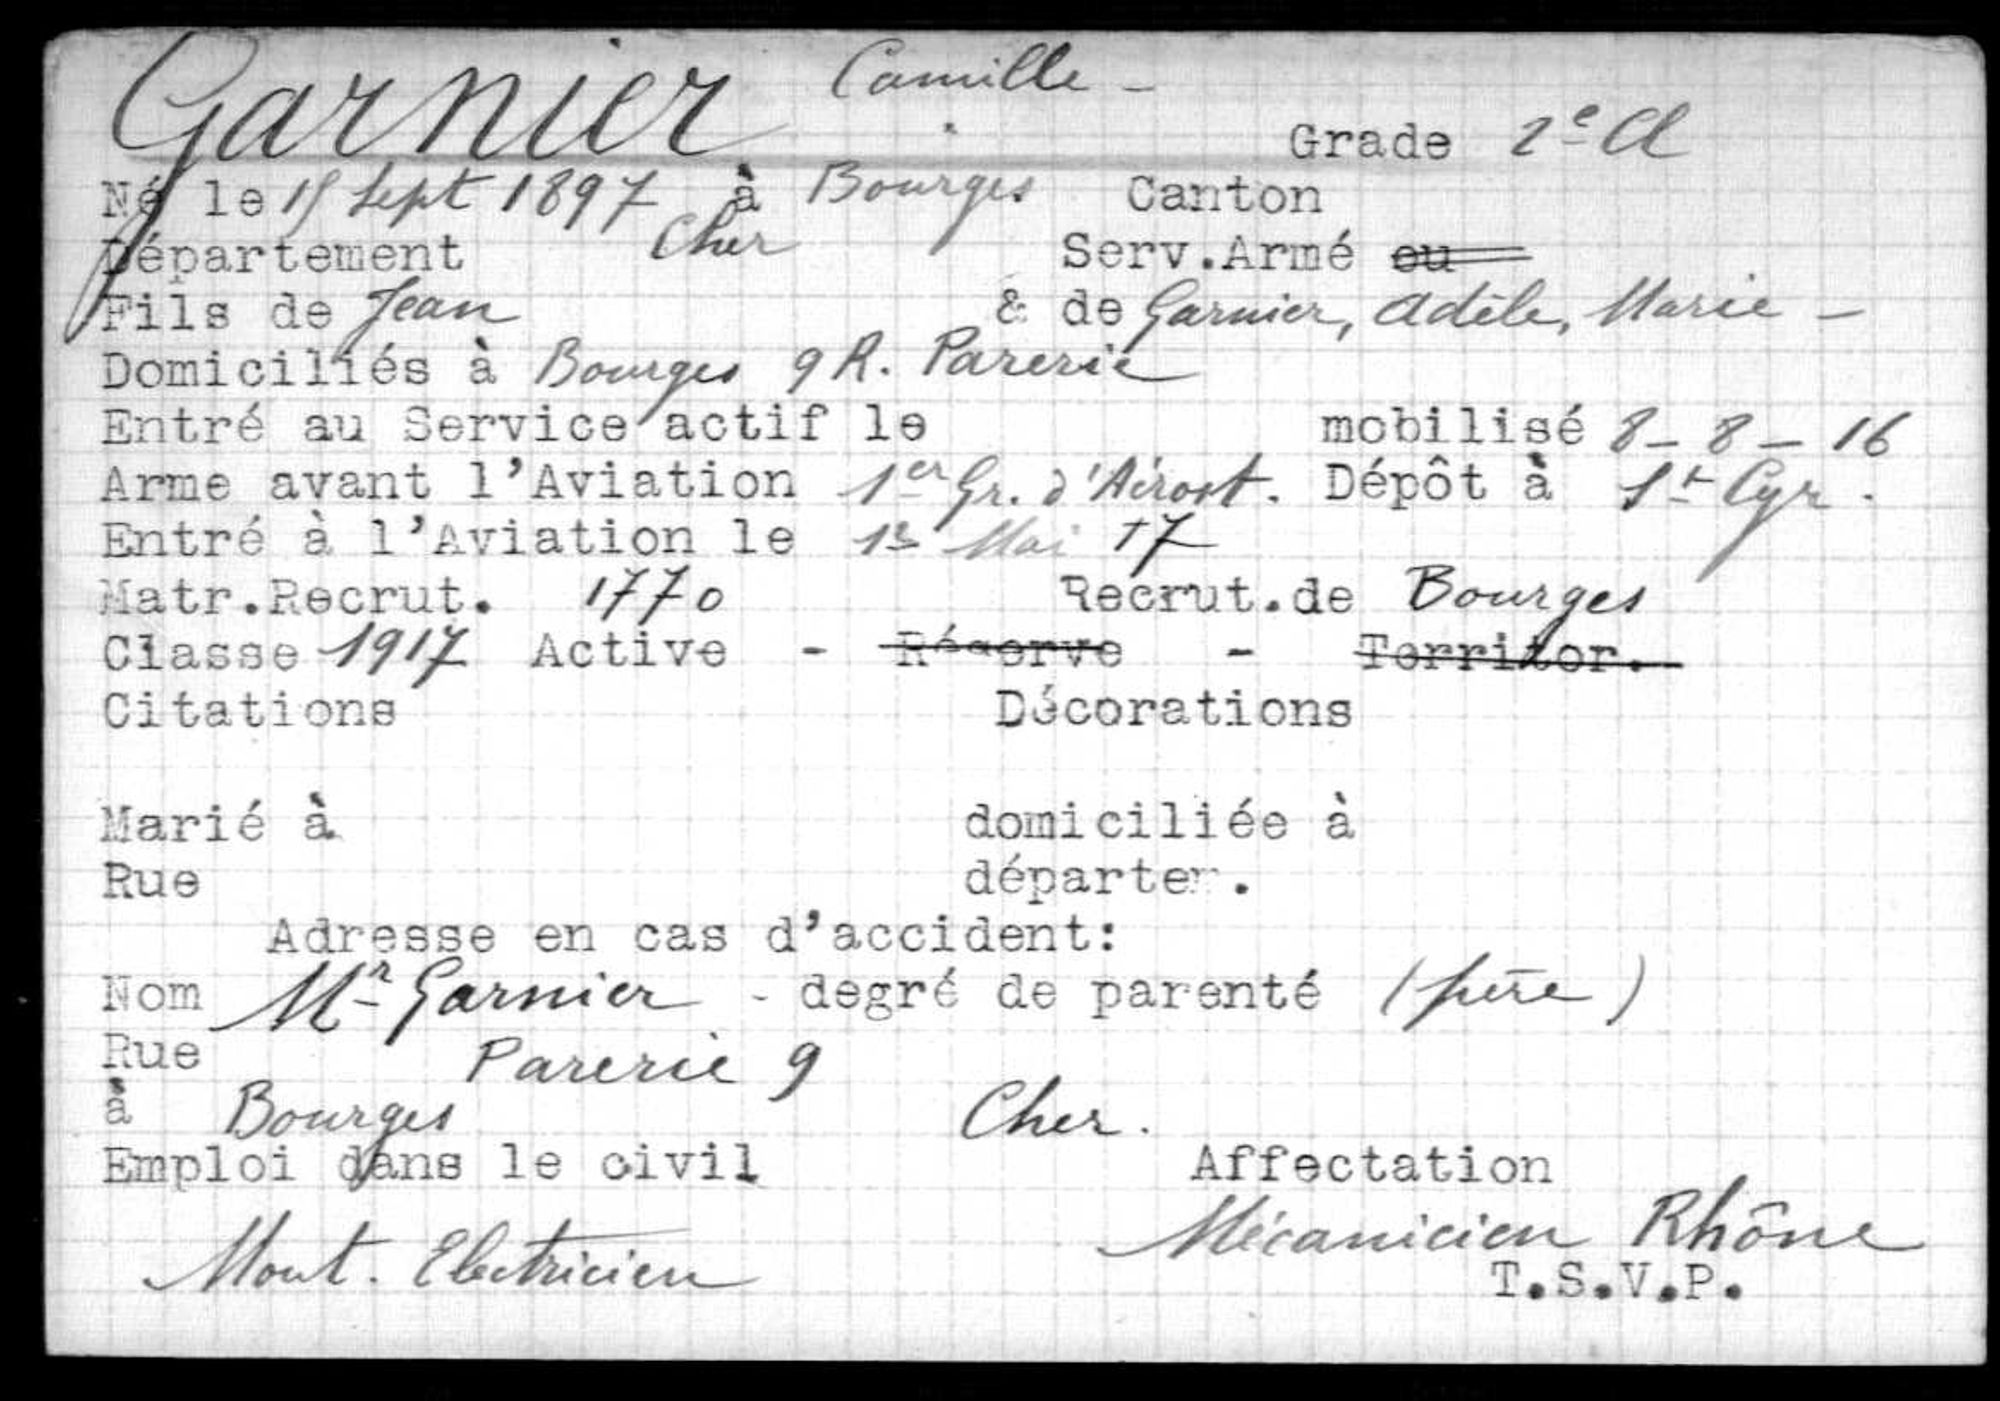 Garnier Camille -
Grade 2e Cl
Né le 15 Sept 1897 à Bourges Canton
Département Cher Serv.Armé ou
Fils de Jean & de Garnier, Adèle, Marie -
Domiciliés à Bourges 9 R. Parerie
Entré au Service actif le mobilisé 8-8-16
Arme avant l'Aviation 1er Gr. d'Aérost. Dépôt à St Cyr.
Entré à l'Aviation le 13 Mai 17
Matr.Recrut. 1770 Recrut.de Bourges
Classe 1917 Active - Réserve - Territor.
Citations Décorations
Marié à domiciliée à
Rue départem.
Adresse en cas d'accident:
Nom Mr Garnier - degré de parenté (père)
Rue Parerie 9
à Bourges Cher.
Emploi dans le civil Affectation
Mont. Electricien Mécanicien Rhône
T.S.V.P.